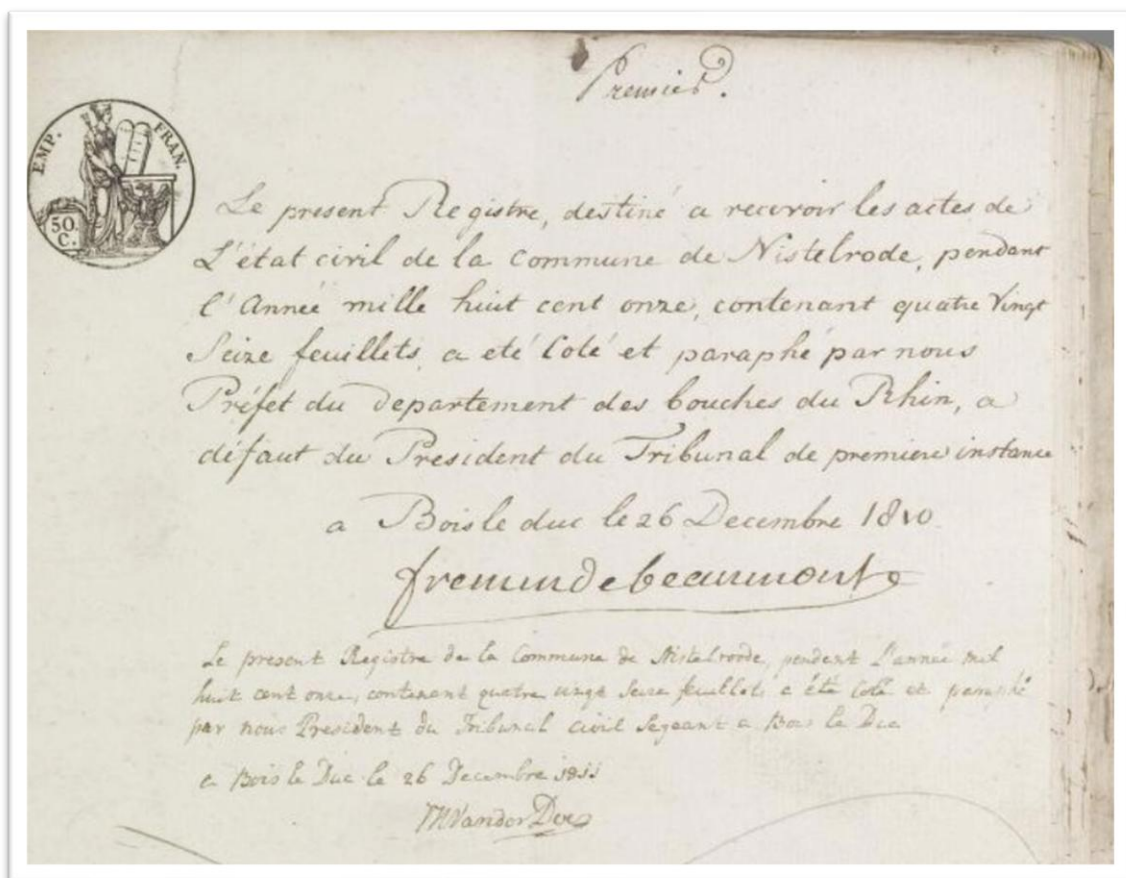 Premier.
EMP. FRAN.
50.
C.
Le present Registre, destiné a recevoir les actes de
L'état civil de la Commune de Nistelrode, pendant
l'Année mille huit cent onze, contenant quatre Vingt
Seize feuillets, a eté Coté et paraphé par nous
Préfet du Departement des bouches du Rhin, a
défaut du President du Tribunal de premiere instance
a Bois le duc le 26 Decembre 1810.
fremin de beaumont
Le present Registre de la Commune de Nistelroode, pendent L'année mil
huit cent onze, contenant quatre vingt Seize feuillets a été Coté et paraphé
par nous President du Tribunal civil Segeant a Bois le Duc
a Bois le Duc le 26 Decembre 1811